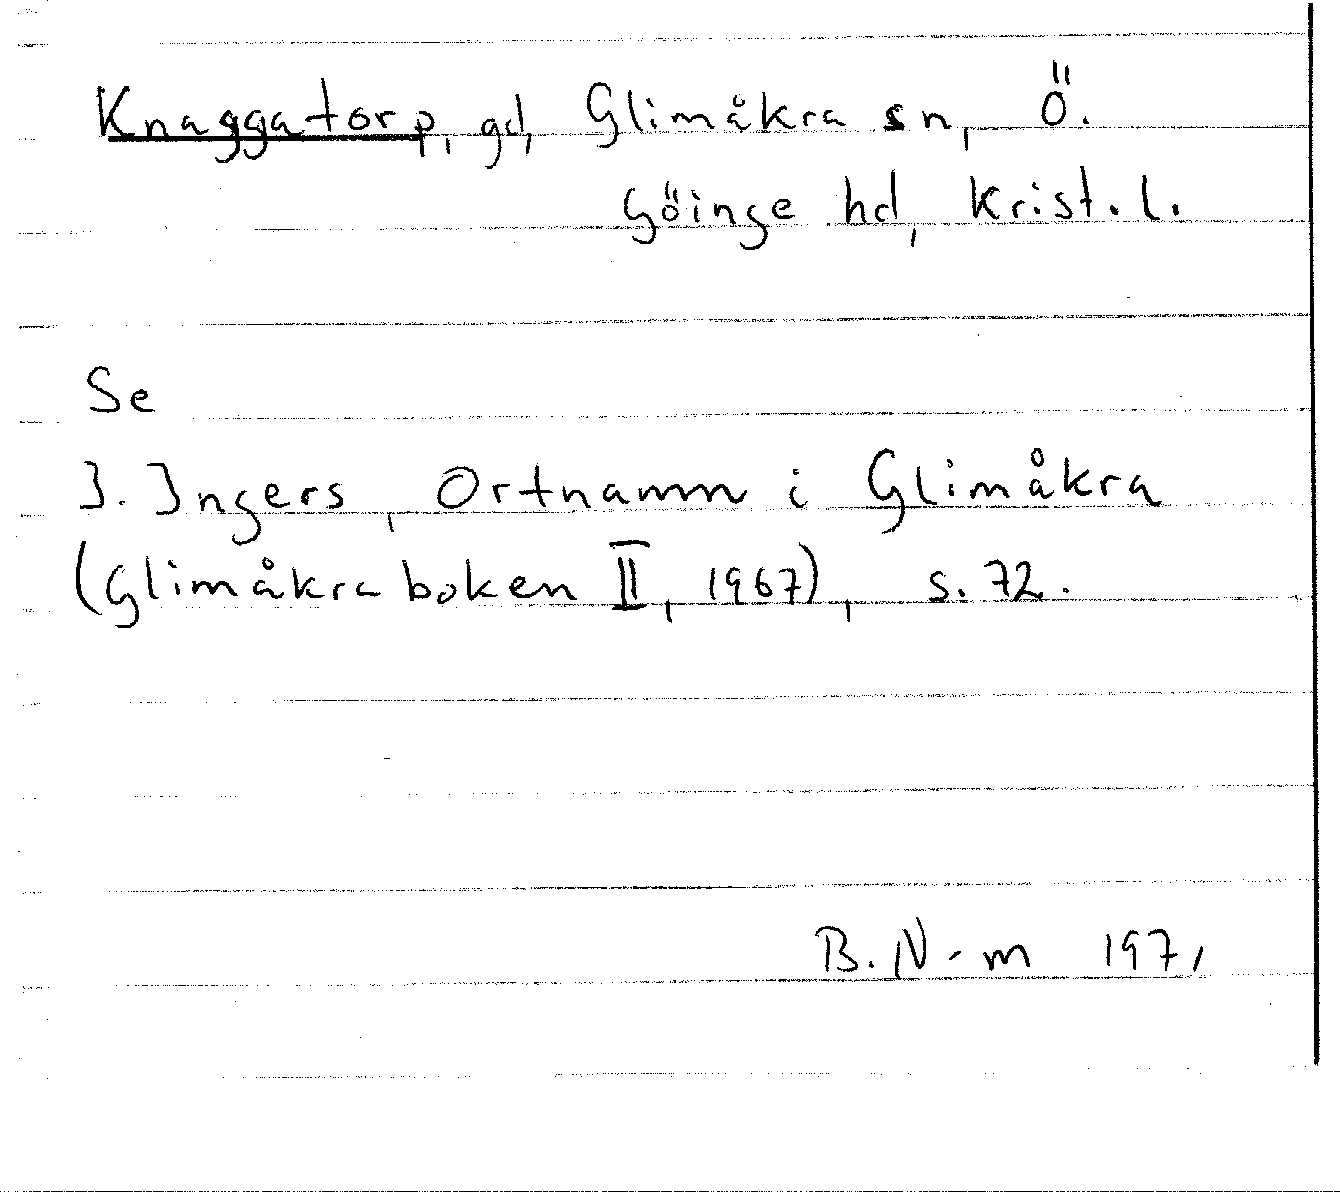 Knaggatorp, gd, Glimåkra sn, Ö.
Göinge hd, Krist. l.
Se
I. Ingers, Ortnamn i Glimåkra
(Glimåkraboken II, 1967), s. 72.
B. N-m 1971